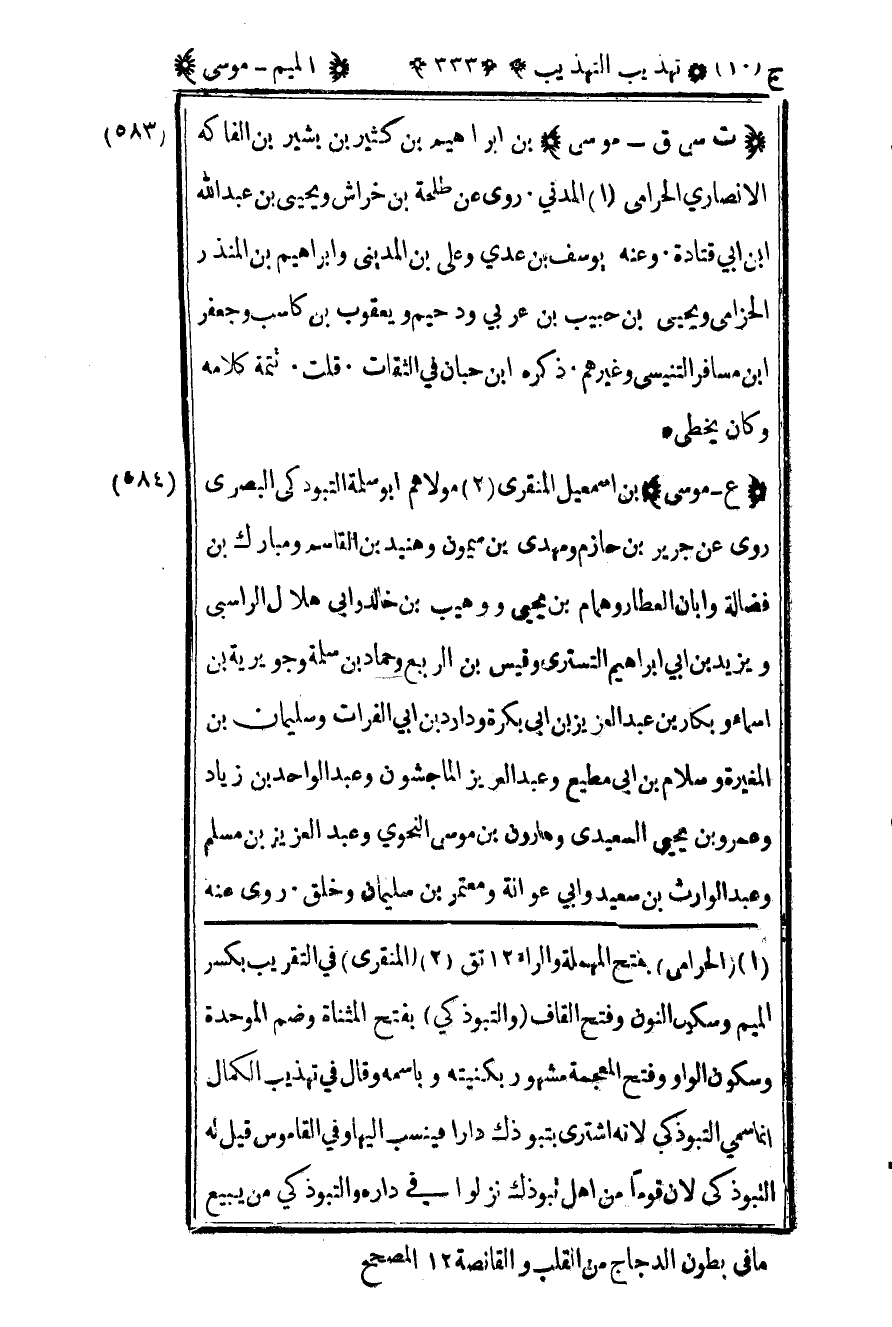 ج (١٠) ﴿ تهذيب التهذيب ﴾ ﴿ ٣٣٣ ﴾ ﴿ الميم - موسى ﴾
﴿ ت سى ق - موسى ﴾ بن ابراهيم بن كثير بن بشير بن الفاكه (٥٨٣)
الانصاري الحرامى (١) المدني . روى عن طلحة بن خراش ويحيى بن عبدالله
ابن ابي قتادة . وعنه يوسف بن عدي وعلى بن المدينى وابراهيم بن المنذر
الحزامى ويحيى بن حبيب بن عربي ودحيم ويعقوب بن كاسب وجعفر
ابن مسافر التنيسى وغيرهم . ذكره ابن حبان في الثقات . قلت . تتمة كلامه
وكان يخطى *
﴿ ع - موسى ﴾ بن اسمعيل المنقرى (٢) مولاهم ابو سلمة التبوذكى البصرى (٥٨٤)
روى عن جرير بن حازم ومهدى بن ميمون وهنيد بن القاسم ومبارك بن
فضالة وابان العطار وهمام بن يحيى ووهيب بن خالد وابي هلال الراسبى
ويزيد بن ابي ابراهيم التسترى وقيس بن الربيع وحماد بن سلمة وجويرية بن
اسماء وبكار بن عبد العزيز بن ابى بكرة وداود بن ابي الفرات وسليمان بن
المغيرة وسلام بن ابى مطيع وعبد العزيز الماجشون وعبد الواحد بن زياد
وعمرو بن يحيى السعيدى وهارون بن موسى النحوي وعبد العزيز بن مسلم
وعبد الوارث بن سعيد وابي عوانة ومعتمر بن سليمان وخلق . روى عنه
(١) (الحرامى) بفتح المهملة والراء ١٢ تق (٢) (المنقرى) في التقريب بكسر
الميم وسكون النون وفتح القاف (والتبوذكي) بفتح المثناة وضم الموحدة
وسكون الواو وفتح المعجمة مشهور بكنيته وباسمه وقال في تهذيب الكمال
انما سمي التبوذكي لانه اشترى بتبوذك دارا فينسب اليها وفي القاموس قيل له
التبوذكى لان قوماً من اهل تبوذك نزلوا في داره والتبوذكي من يبيع
مافى بطون الدجاج من القلب والقانصة ١٢ المصحح